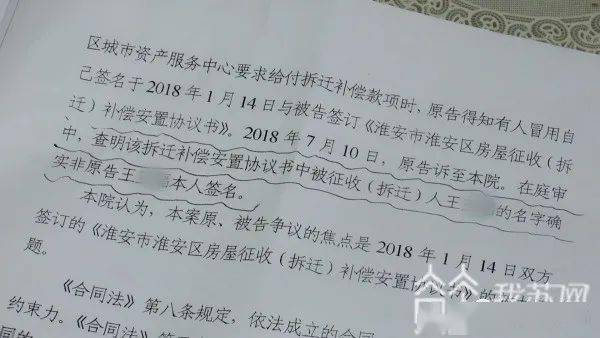 区城市资产服务中心要求给付拆迁补偿款项时，原告得知有人冒用自
己签名于2018年1月14日与被告签订《淮安市淮安区房屋征收（拆
迁）补偿安置协议书》。2018年7月10日，原告诉至本院。在庭审
中，查明该拆迁补偿安置协议书中被征收（拆迁）人王 的名字确
实非原告王 本人签名。
本院认为，本案原、被告争议的焦点是2018年1月14日双方
签订的《淮安市淮安区房屋征收（拆迁）补偿安置协议书》的
题。
《合同法》第八条规定，依法成立的合同
约束力。《合同法》第
同的
我苏网